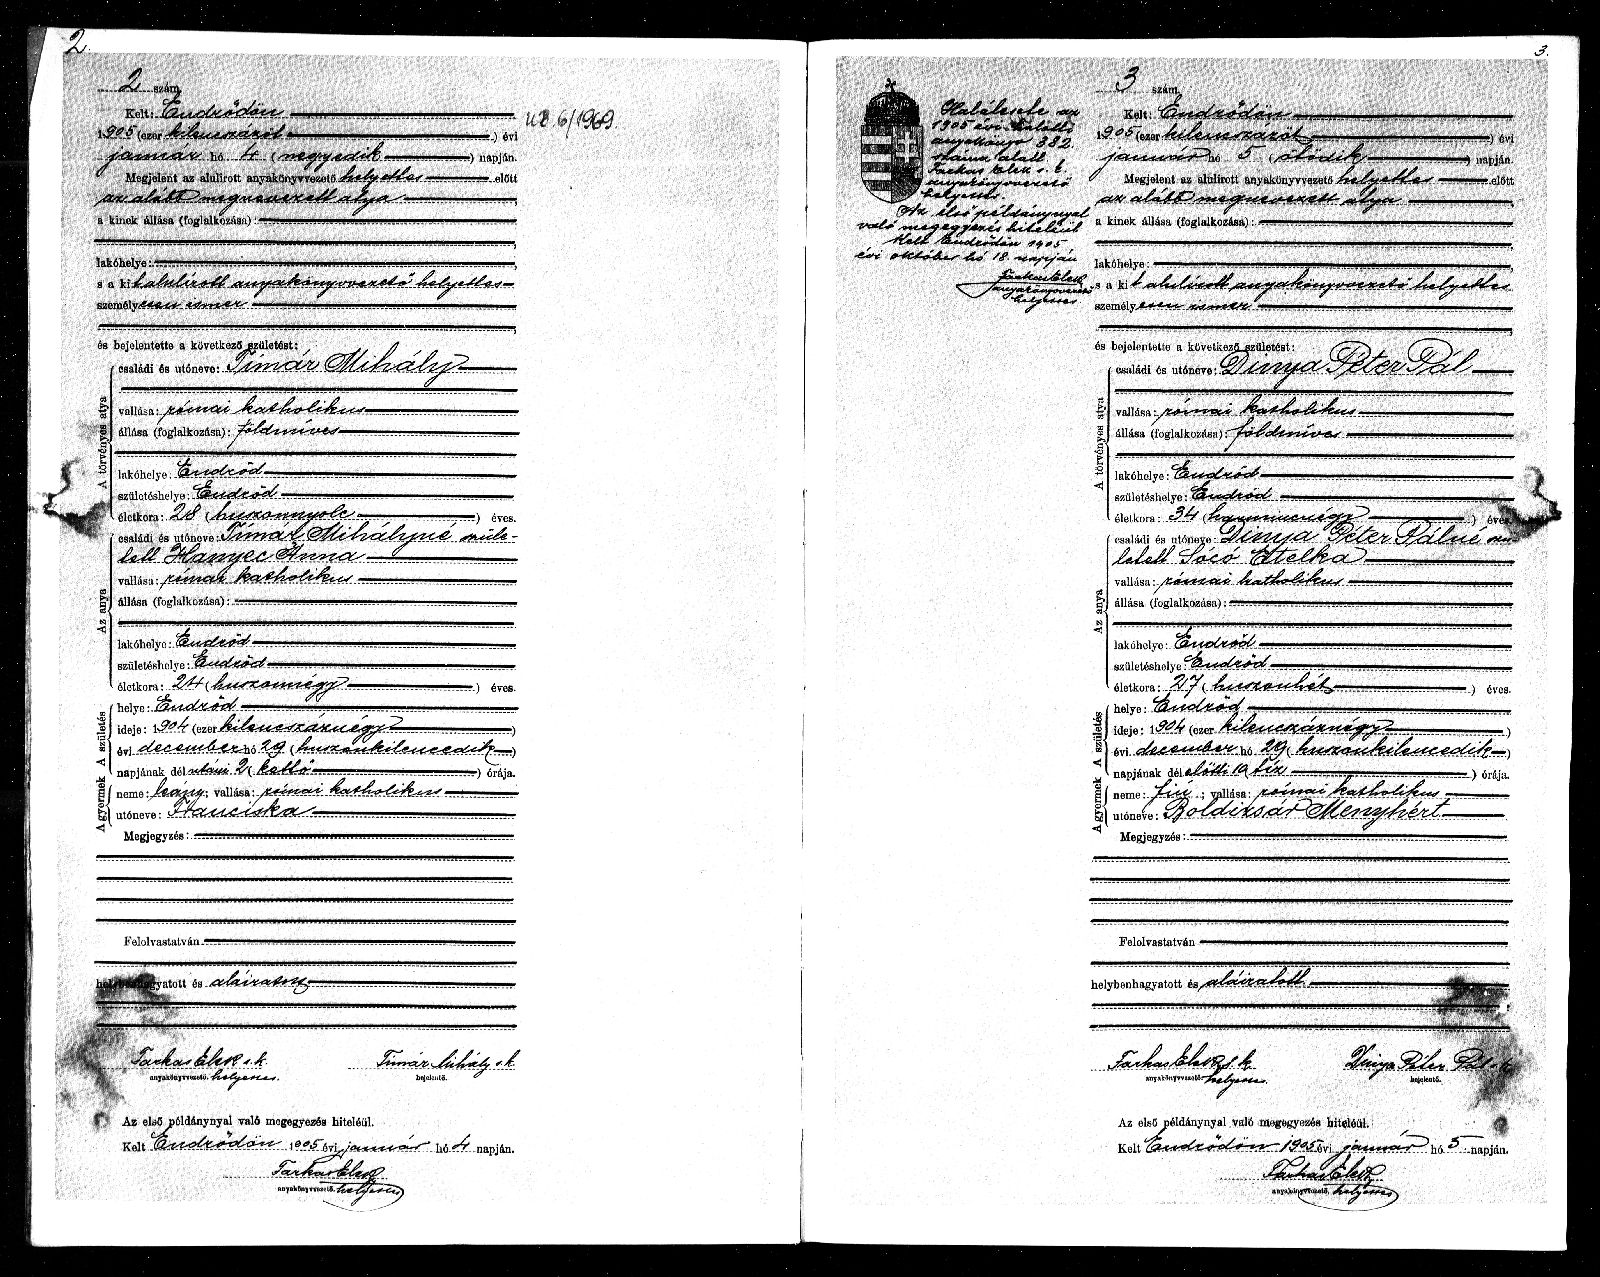 2.
2 szám.
Kelt: Endrődön
1905 (ezer kilenczszázöt) évi
január hó 4 (negyedik) napján.
Megjelent az alulirott anyakönyvvezető helyettes előtt
az alább megnevezett atya
a kinek állása (foglalkozása):
lakóhelye:
s a kit alulírott anyakönyvvezető helyettes
személyesen ismer
és bejelentette a következő születést:
A törvényes atya
családi és utóneve: Tímár Mihály
vallása: római katholikus
állása (foglalkozása): földmíves
lakóhelye: Endrőd
születéshelye: Endrőd
életkora: 28 (huszonnyolc) éves.
Az anya
családi és utóneve: Tímár Mihályné szüle-
tett Hanyec Anna
vallása: római katholikus
állása (foglalkozása):
lakóhelye: Endrőd
születéshelye: Endrőd
életkora: 24 (huszonnégy) éves.
A születés
helye: Endrőd
ideje: 1904 (ezer kilencszáznégy)
évi december hó 29 (huszonkilencedik)
napjának dél utáni 2 (kettő) órája.
A gyermek
neme: leány; vallása: római katholikus
utóneve: Franciska
Megjegyzés:
Felolvastatván
helybenhagyatott és aláiratott
Farkas Elek s. k. Tímár Mihály s. k.
anyakönyvvezető. helyettes. bejelentő.
Az első példánynyal való megegyezés hiteléül.
Kelt Endrődön 1905 évi január hó 4 napján.
Farkas Elek
anyakönyvvezető. helyettes
6/1969.
3.
Halálesete az
1905 évi halotti
anyakönyv 332
száma alatt
Farkas Elek s. k.
anyakönyvvezető
helyettes.
Az első példánynyal
való megegyezés hiteléül
Kelt Endrődön 1905
évi október hó 18. napján
Farkas Elek
anyakönyvvezető
helyettes
3 szám.
Kelt: Endrődön
1905 (ezer kilenszázöt) évi
január hó 5 (ötödik) napján.
Megjelent az alulirott anyakönyvvezető helyettes előtt
az alább megnevezett atya
a kinek állása (foglalkozása):
lakóhelye:
s a kit alulírott anyakönyvvezető helyettes
személyesen ismer
és bejelentette a következő születést:
A törvényes atya
családi és utóneve: Dinya Péter Pál
vallása: római katholikus
állása (foglalkozása): földmíves
lakóhelye: Endrőd
születéshelye: Endrőd
életkora: 34 (harmincnégy) éves.
Az anya
családi és utóneve: Dinya Péter Pálné szü
letett Sócó Etelka
vallása: római katholikus
állása (foglalkozása):
lakóhelye: Endrőd
születéshelye: Endrőd
életkora: 27 (huszonhét) éves.
A születés
helye: Endrőd
ideje: 1904 (ezer kilenczáznégy)
évi. december hó 29 (huszonkilencedik)
napjának dél előtti 10 tíz ) órája.
A gyermek
neme: fiú; vallása: római katholikus
utóneve: Boldizsár Menyhért
Megjegyzés:
Felolvastatván
helybenhagyatott és aláiratott
Farkas Elek s. k. Dinya Péter Pál s. k.
anyakönyvvezető. helyettes. bejelentő.
Az első példánynyal való megegyezés hiteléül.
Kelt Endrődön 1905 évi január hó 5 napján.
Farkas Elek
anyakönyvvezető. helyettes